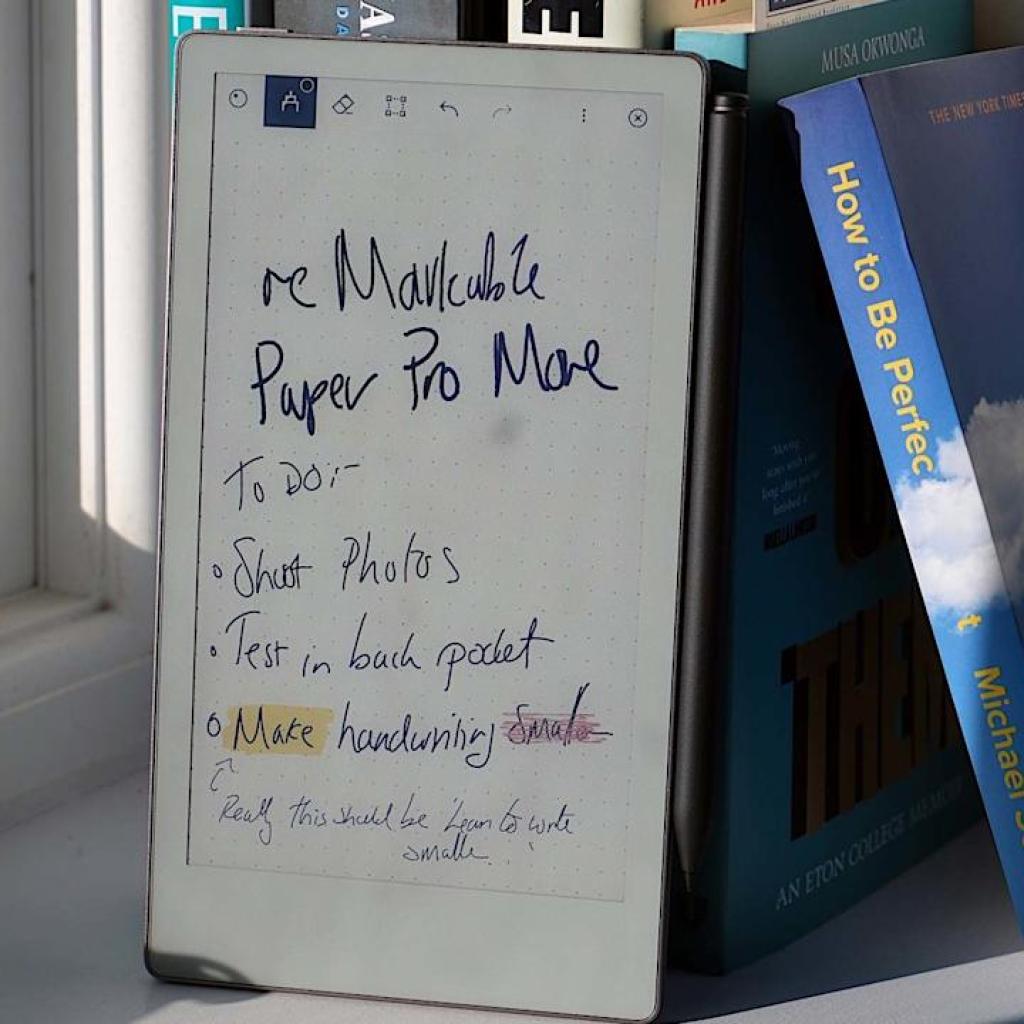 re Markable
Paper Pro Move
To Do:-
Shoot Photos
Test in back pocket
Make handwriting Smaller
Really this should be 'Learn to write
smaller.'
MUSA OKWONGA
THE NEW YORK TIMES
How to Be Perfec
t
Michael S
THEM
AN ETON COLLEGE MEMOIR